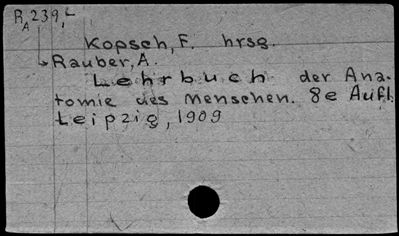 R A 239, L
Kopsch, F. hrsg.
Rauber, A.
Lehrbuch der Ana-
tomie des Menschen. 8e Aufl.
Leipzig, 1909